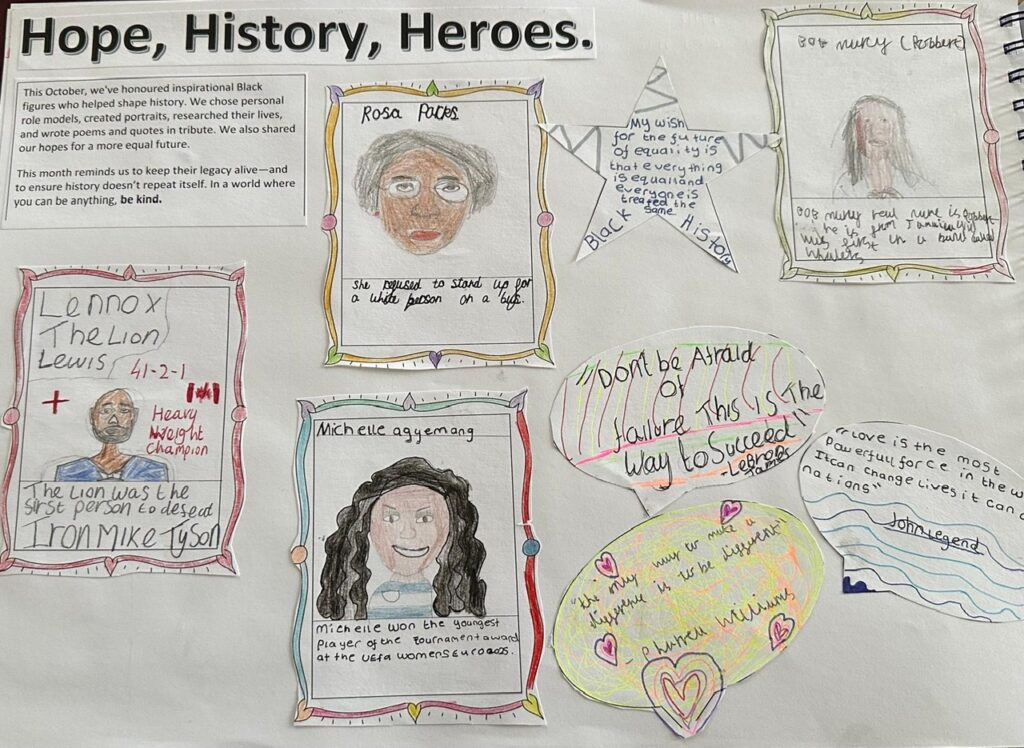 Hope, History, Heroes.
This October, we've honoured inspirational Black
figures who helped shape history. We chose personal
role models, created portraits, researched their lives,
and wrote poems and quotes in tribute. We also shared
our hopes for a more equal future.
This month reminds us to keep their legacy alive—and
to ensure history doesn't repeat itself. In a world where
you can be anything, be kind.
Rosa Parks
she refused to stand up for
a white person on a bus.
My wish
for the future
of equality is
that everything
is equall and
everyone is
treated the
same
Black History
BOB murly (Robbert)
BOB murly real name is Robbert
he is from
first in a band called
Lennox
The Lion
Lewis
41-2-1
Heavy
Weight
Champion
The Lion was the
first person to defeat
Iron Mike Tyson
Michelle agyemang
Michelle won the youngest
player of the tournament award
at the uefa womens euro 2025.
"Don't be Afraid
Of
failure This Is The
Way to Succeed"
-Lebron
James
"Love is the most
Powerfull force in the
It can change lives it can
nations"
John Legend
"the only way to make a
difference is to be different"
- Pharrell Williams
B